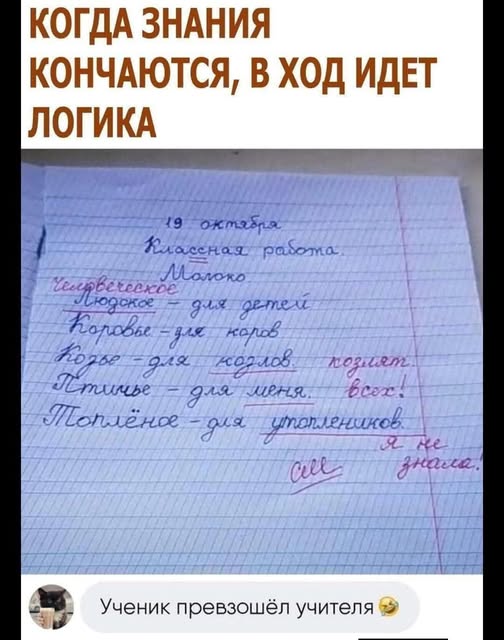 КОГДА ЗНАНИЯ
КОНЧАЮТСЯ, В ХОД ИДЕТ
ЛОГИКА
19 октября
Классная работа.
Молоко
Человеческое
Людское – для детей
Коровье – для коров
Козье – для козлов. козлят.
Птичье – для меня. Всех!
Топлёное – для утоплеников.
я не
см знала!
Ученик превзошёл учителя🤣